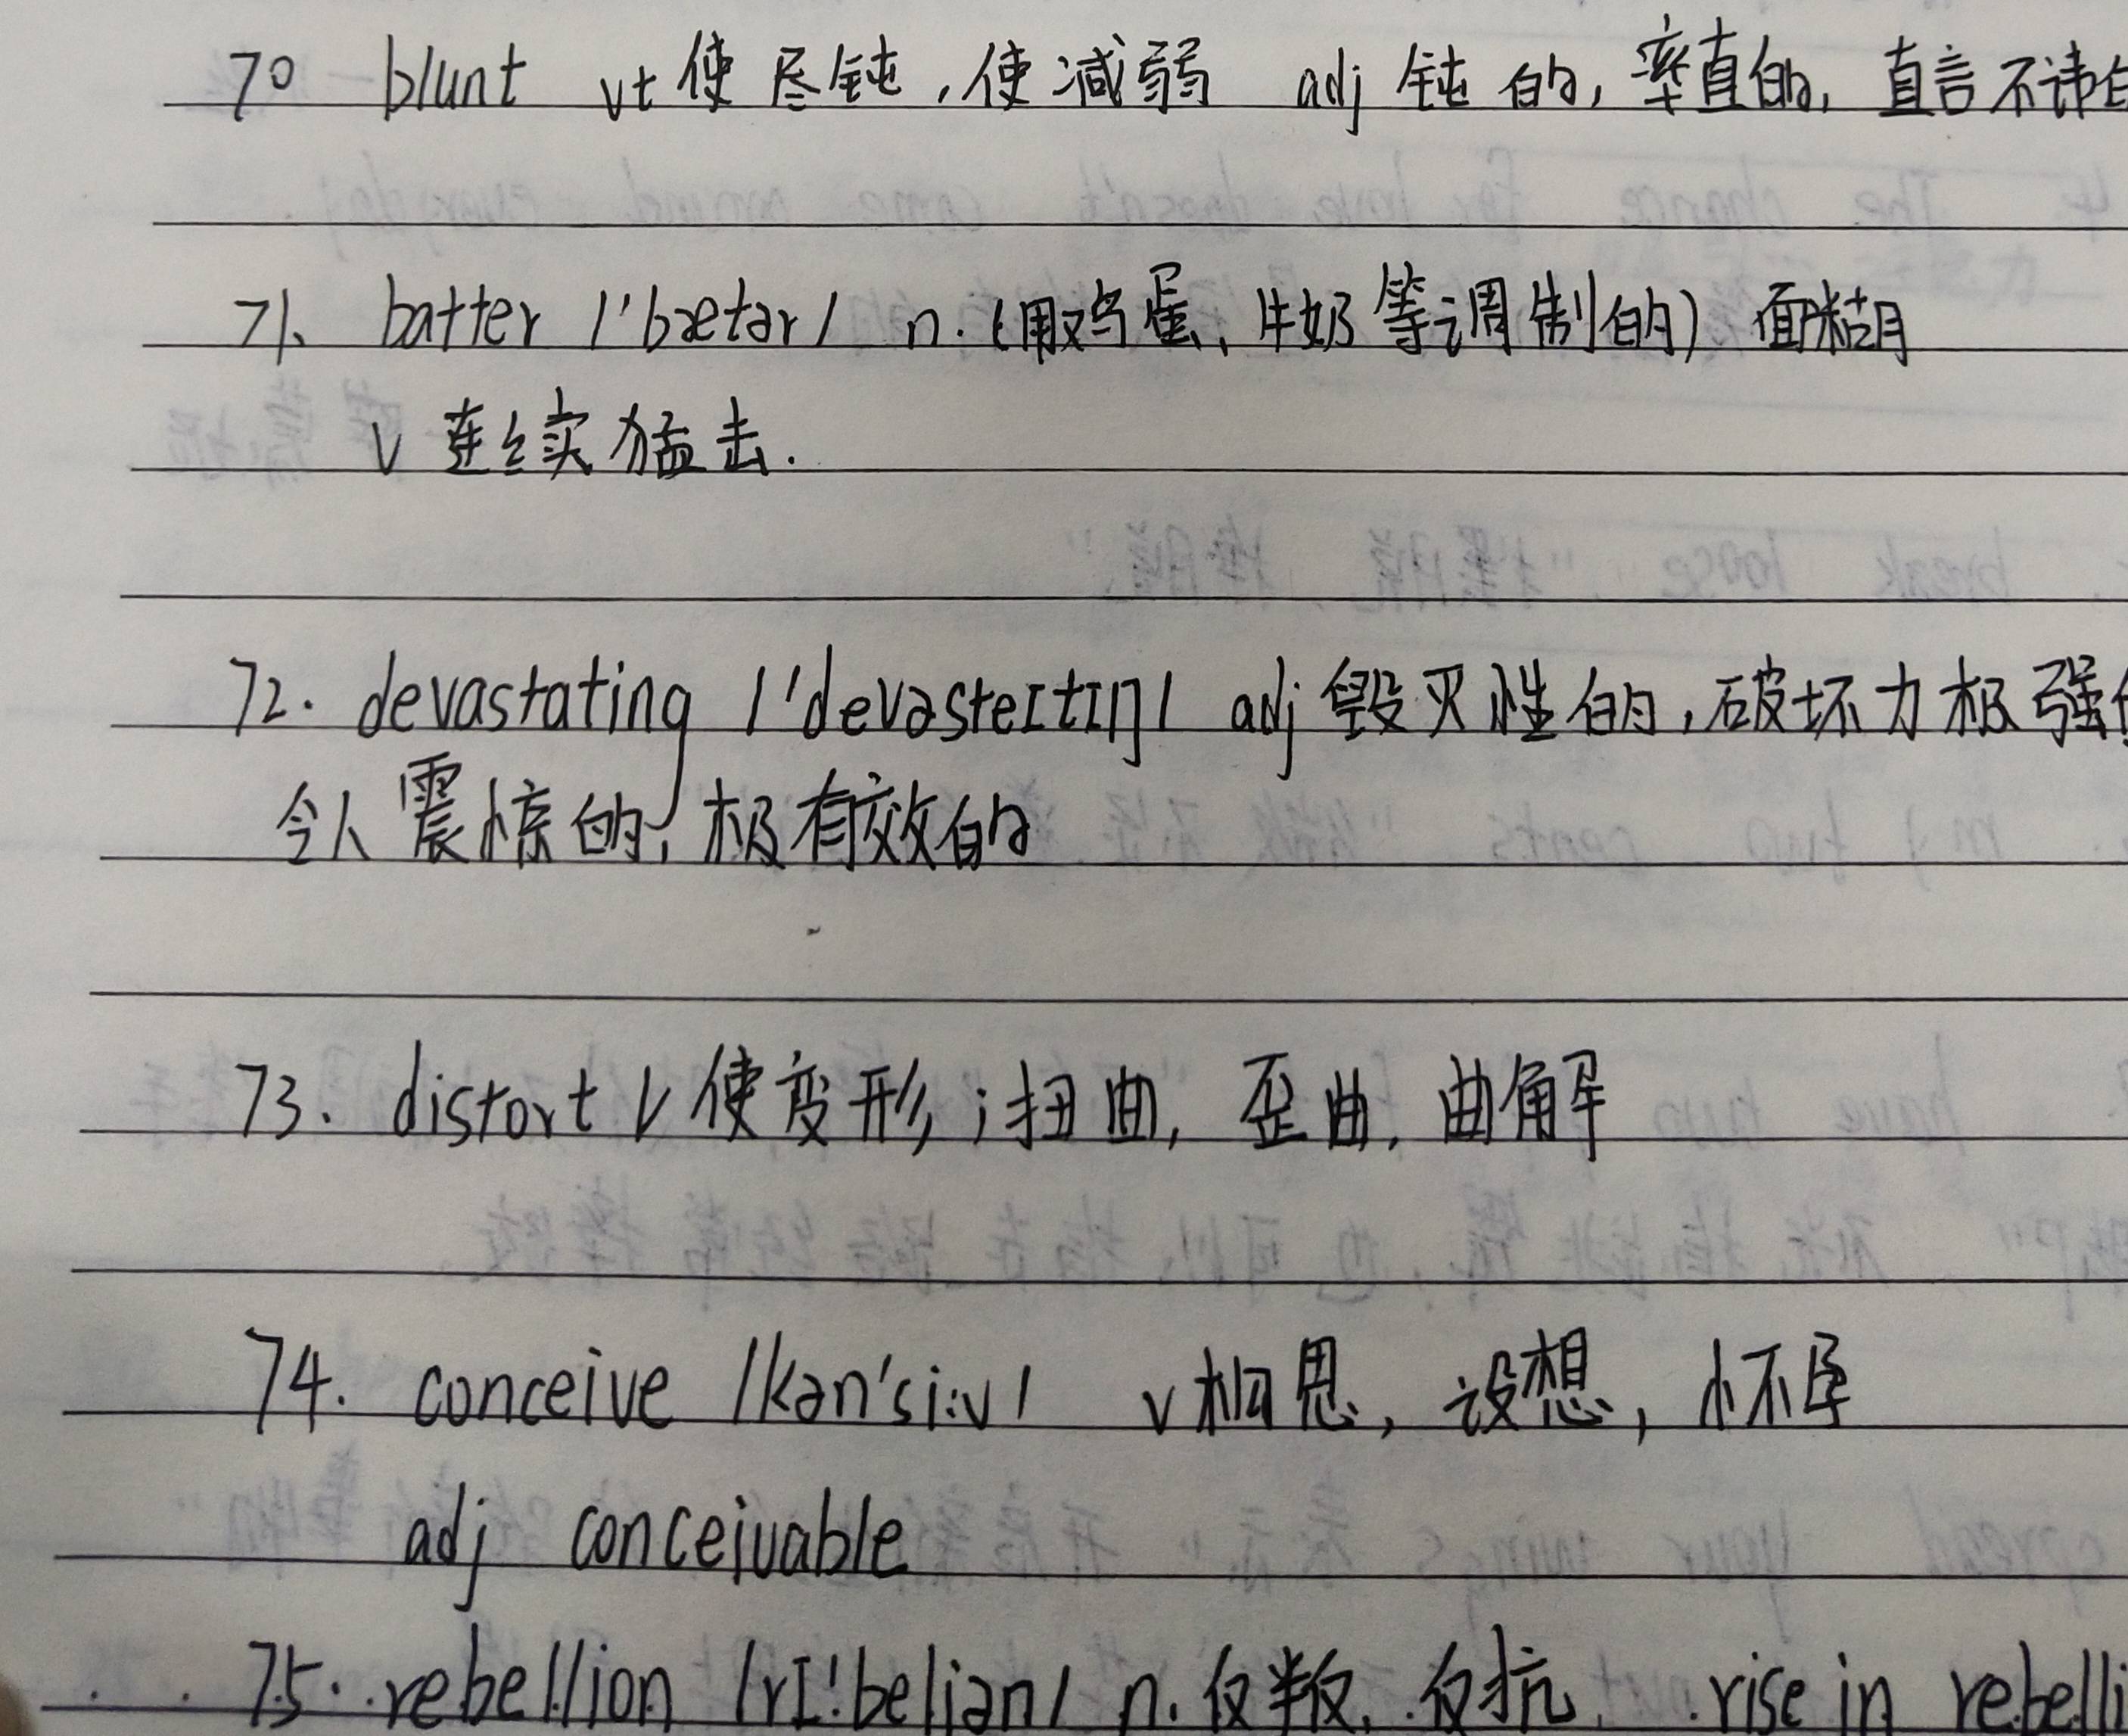 70 blunt vt 使尽钝,使减弱 adj 钝的,率直的,直言不讳
71、batter /'bætər/ n.(用鸡蛋、牛奶等调制的)面糊
v 连续猛击.
72. devastating /'devəsteɪtɪŋ/ adj 毁灭性的,破坏力极强
令人震惊的,极有效的
73. distort v 使变形;扭曲,歪曲,曲解
74. conceive /kən'si:v/ v 构思,设想,怀孕
adj conceivable
75. rebellion /rɪ'beljən/ n. 反叛,反抗 rise in rebelli